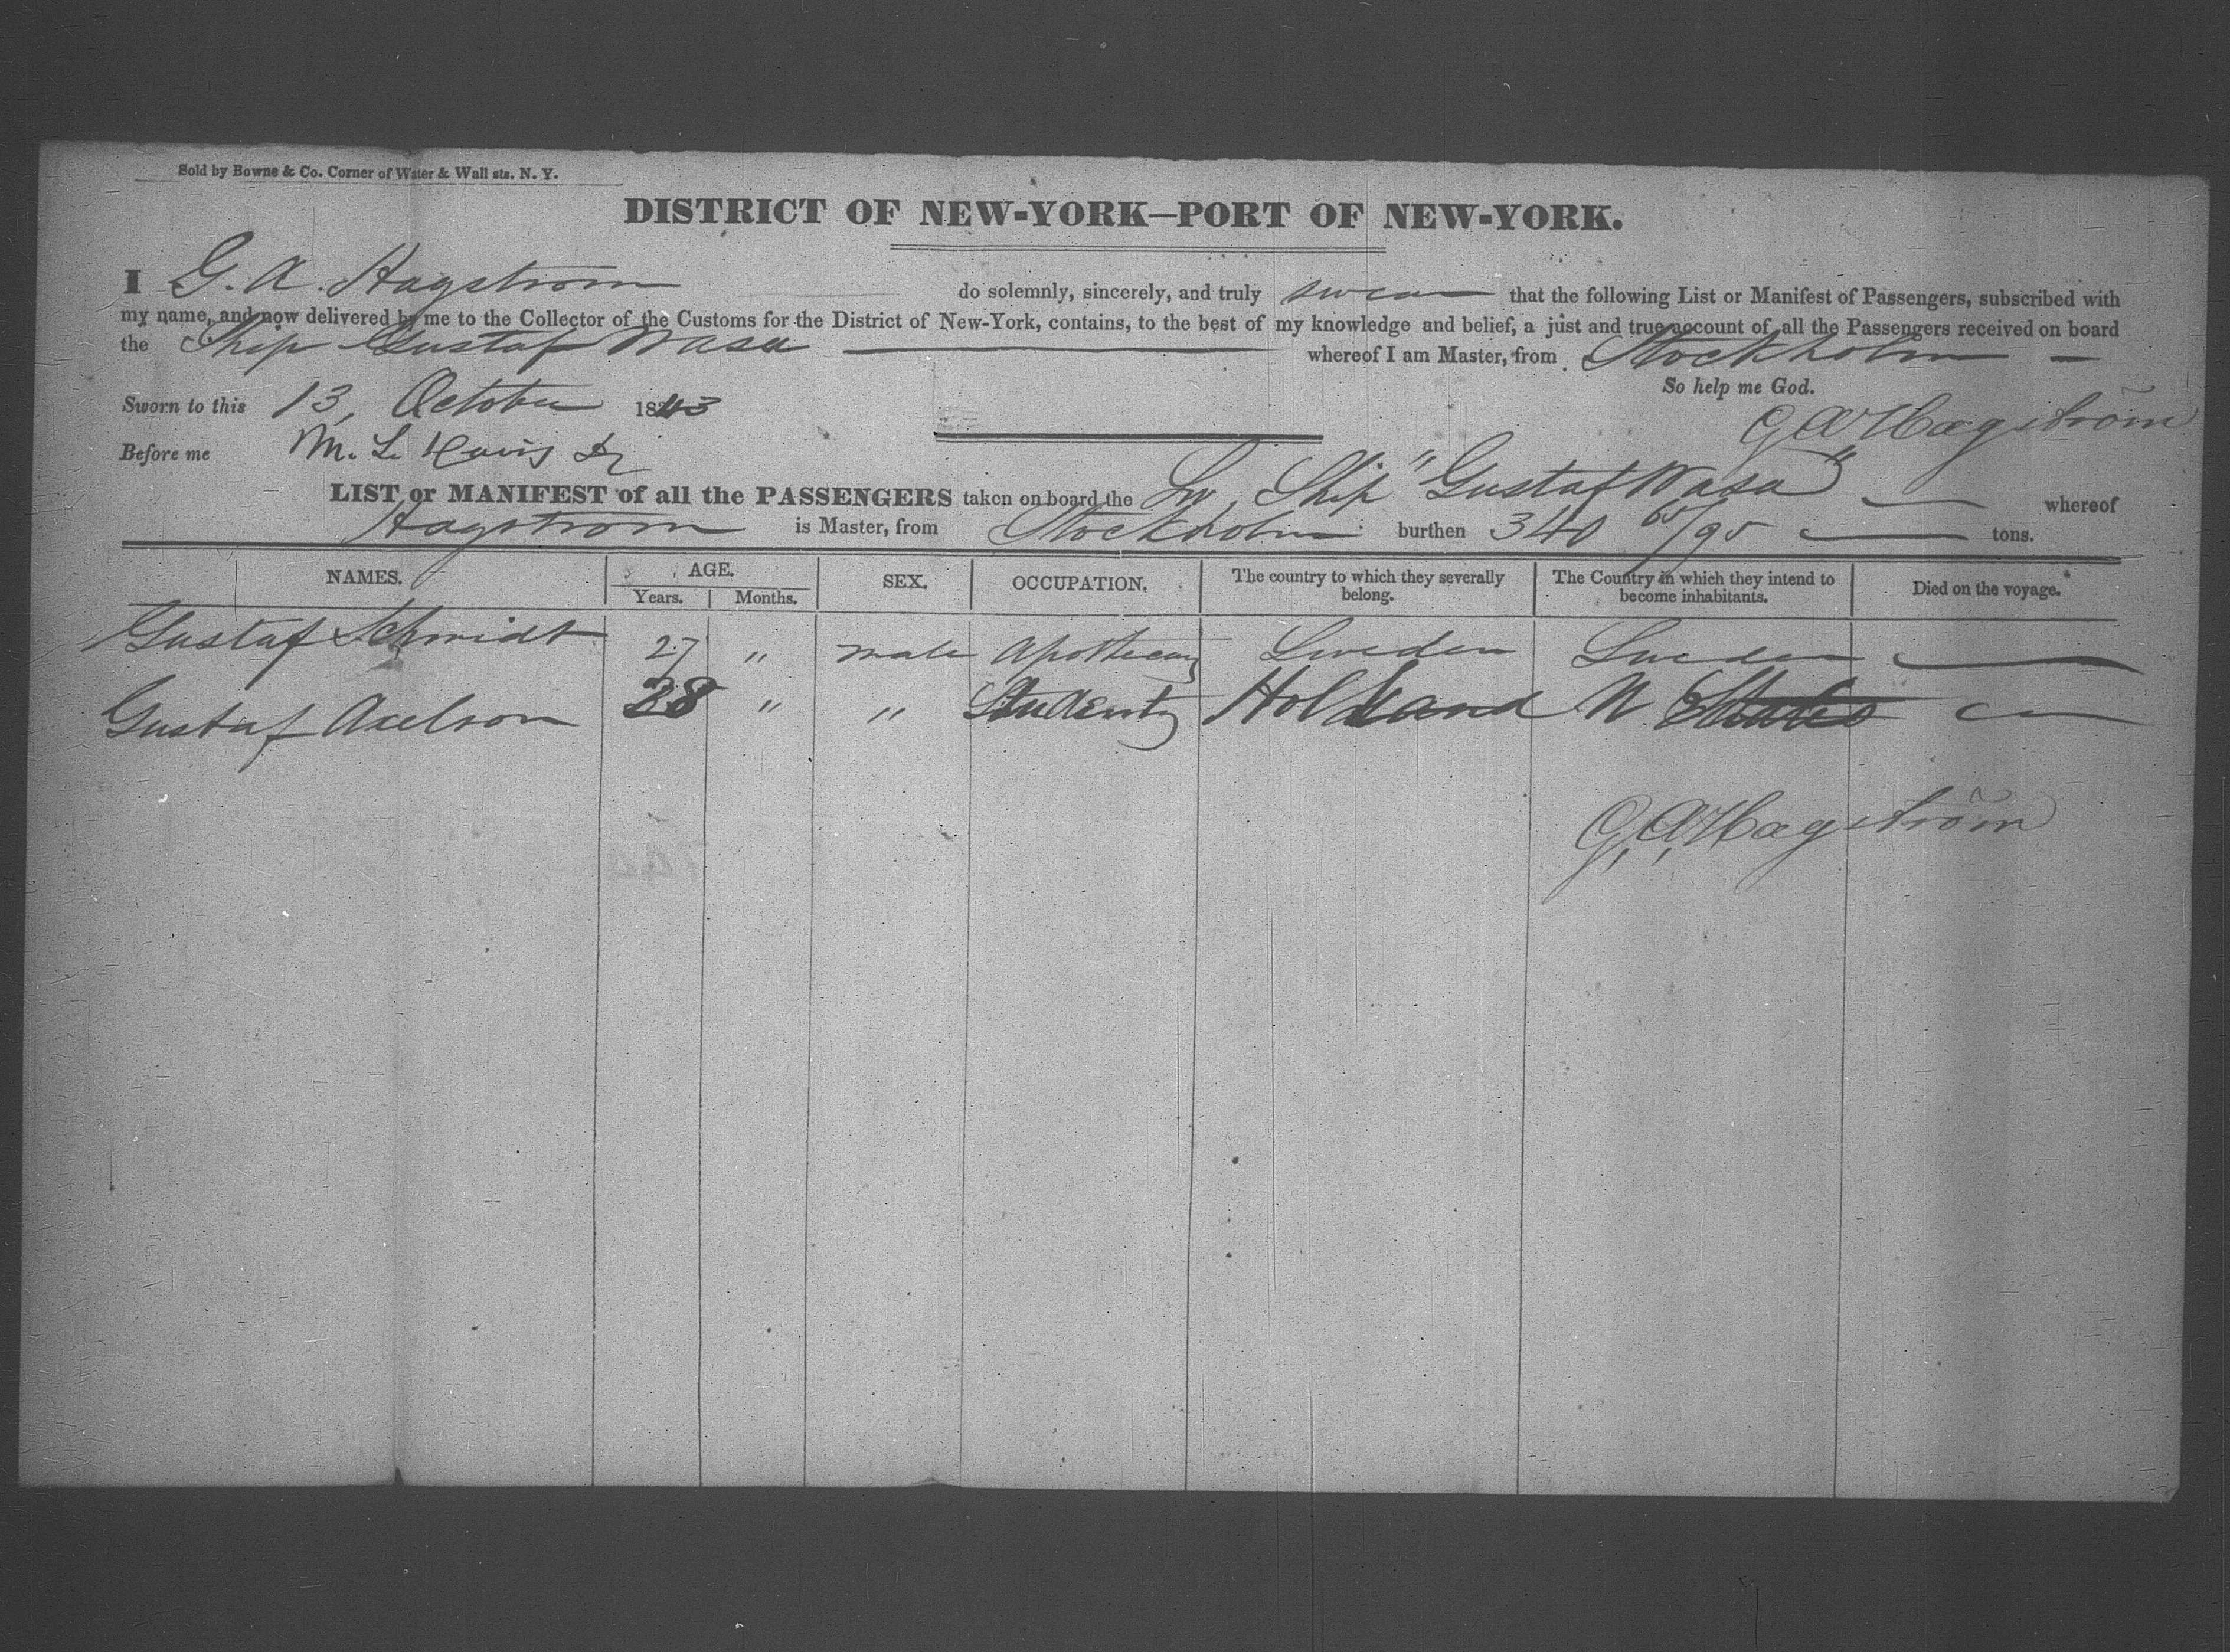 Sold by Bowne & Co. Corner of Water & Wall sts. N. Y.
DISTRICT OF NEW-YORK—PORT OF NEW-YORK.
I G. A. Hagstrom do solemnly, sincerely, and truly swear that the following List or Manifest of Passengers, subscribed with
my name, and now delivered by me to the Collector of the Customs for the District of New-York, contains, to the best of my knowledge and belief, a just and true account of all the Passengers received on board
the Ship Gustaf Wasa whereof I am Master, from Stockholm
So help me God.
Sworn to this 13, October 1843
G A Hagström
Before me M. L. Davis
LIST or MANIFEST of all the PASSENGERS taken on board the Sw. Ship "Gustaf Wasa" whereof
Hagstrom is Master, from Stockholm burthen 340 65/95 tons.
NAMES. AGE. SEX. OCCUPATION. The country to which they severally belong. The Country in which they intend to become inhabitants. Died on the voyage.
Years. Months.
Gustaf Schmidt 27 " male Apothecary Sweden Sweden —
Gustaf Axelson 28 " " Holland
G. A. Hagström